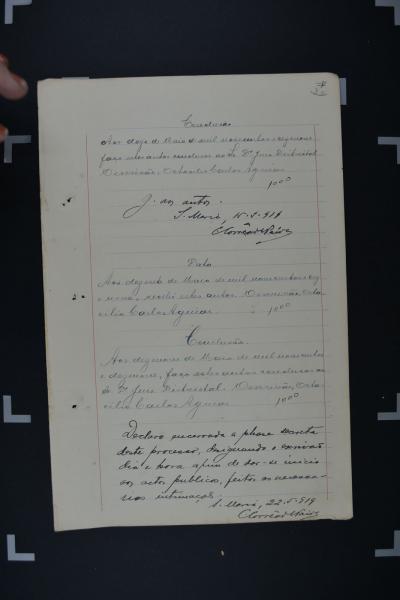 Conclusão
Aos doze de Maio de mil novecentos e dezenove,
faço estes autos conclusos ao Sr. Dr. Juiz Districtal.
O escrivão, Octacilio Carlos Aguiar
1000
J. aos autos.
S. Maria, 15-5-919
Corrêa de
Data
Aos dezeseis de Maio de mil novecentos e
recebi estes autos. O escrivão, Octa-
cilio Carlos Aguiar
1000
Conclusão
Aos dezenove de Maio de mil novecentos
e dezenove, faço estes autos conclusos ao
Dr. Juiz Districtal. O escrivão, Octa-
cilio Carlos Aguiar
1000
Declaro encerrada a phase secreta
deste processo, designando o escrivão
dia e hora afim de dar-se inicio
aos actos publicos, feitas as necessa-
rias intimações.
S. Maria, 22-5-919
Corrêa de